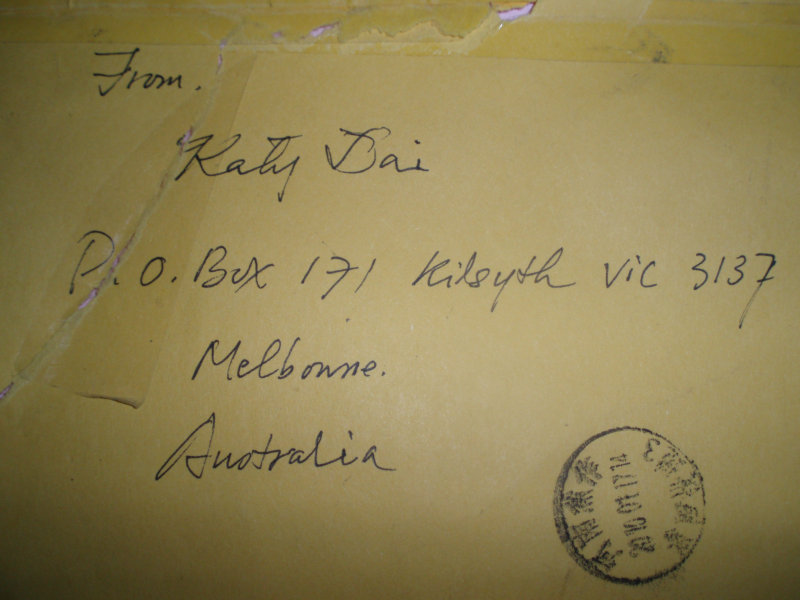 From.
Katy Dai
P.O. Box 171 Kilsyth Vic 3137
Melbourne.
Australia